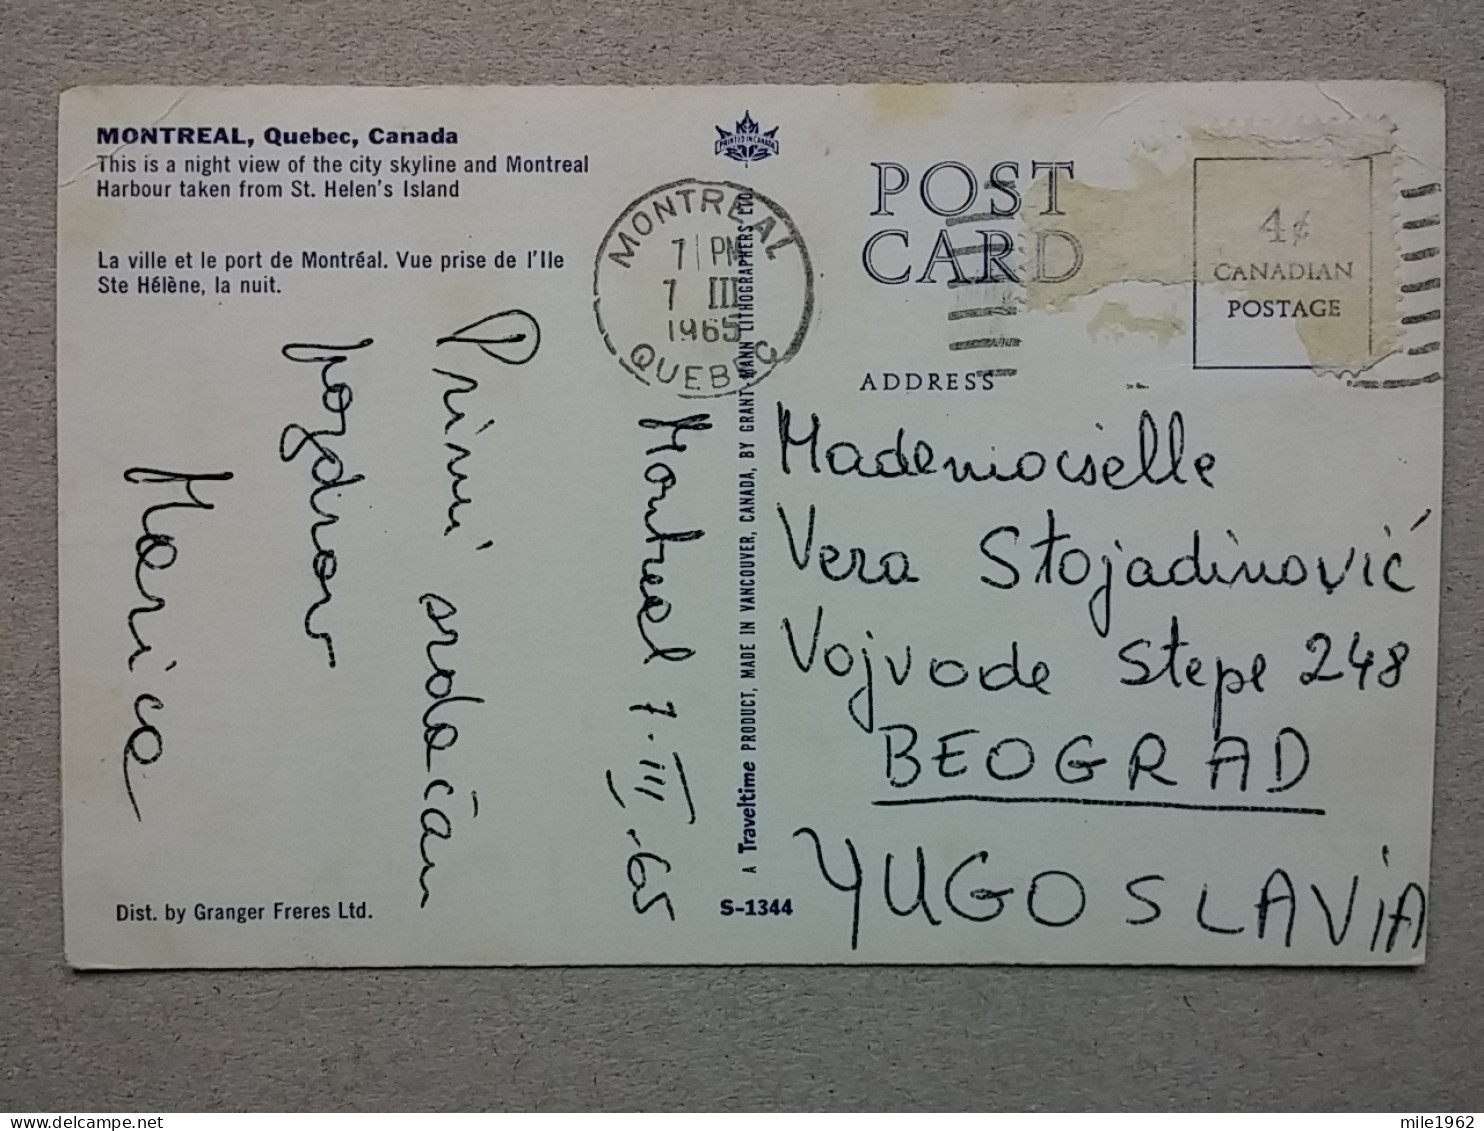 MONTREAL, Quebec, Canada
This is a night view of the city skyline and Montreal
Harbour taken from St. Helen's Island
La ville et le port de Montréal. Vue prise de l'Ile
Ste Hélène, la nuit.
Montreal 7.III.-65
Primi srdačan
pozdrav
Marica
Dist. by Granger Freres Ltd.
PRINTED IN CANADA
A Traveltime PRODUCT, MADE IN VANCOUVER, CANADA, BY GRANT-MANN LITHOGRAPHERS LTD
S-1344
MONTREAL
7 PM
7 III
1965
QUEBEC
POST
CARD
4¢
CANADIAN
POSTAGE
ADDRESS
Mademoiselle
Vera Stojadinović
Vojvode Stepe 248
BEOGRAD
YUGOSLAVIA
mile1962